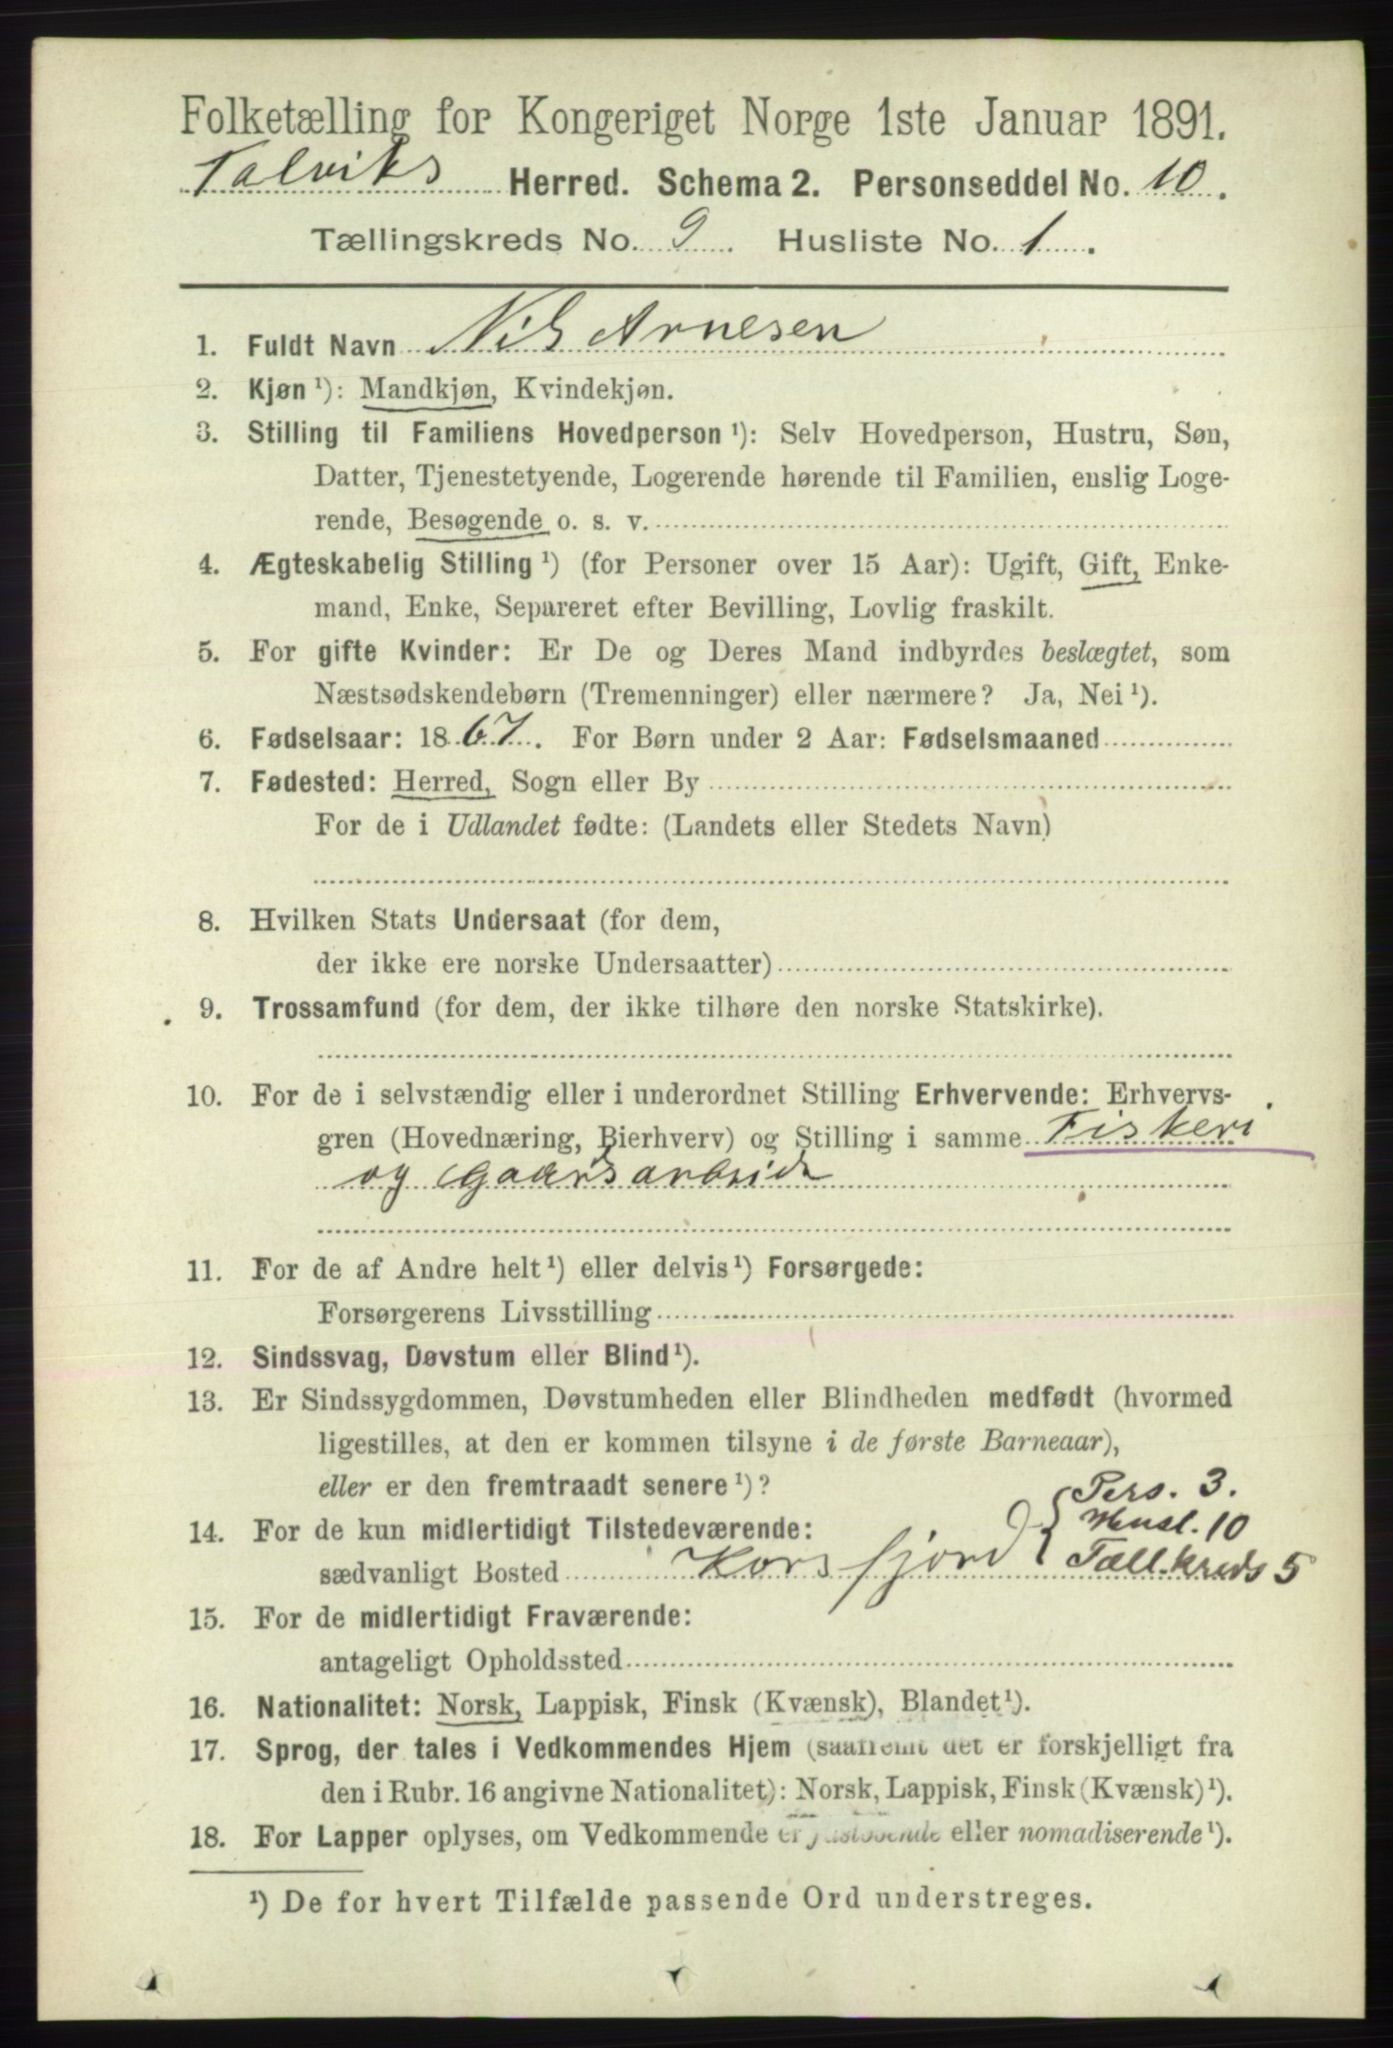 Folketælling for Kongeriget Norge 1ste Januar 1891.
Talviks Herred. Schema 2. Personseddel No. 10.
Tællingskreds No. 9. Husliste No. 1.
1. Fuldt Navn Nils Arnesen
2. Kjøn ¹): Mandkjøn, Kvindekjøn.
3. Stilling til Familiens Hovedperson ¹): Selv Hovedperson, Hustru, Søn,
Datter, Tjenestetyende, Logerende hørende til Familien, enslig Loge-
rende, Besøgende o. s. v.
4. Ægteskabelig Stilling ¹) (for Personer over 15 Aar): Ugift, Gift, Enke-
mand, Enke, Separeret efter Bevilling, Lovlig fraskilt.
5. For gifte Kvinder: Er De og Deres Mand indbyrdes beslægtet, som
Næstsødskendebørn (Tremenninger) eller nærmere? Ja, Nei ¹).
6. Fødselsaar: 1867. For Børn under 2 Aar: Fødselsmaaned
7. Fødested: Herred, Sogn eller By
For de i Udlandet fødte: (Landets eller Stedets Navn)
8. Hvilken Stats Undersaat (for dem,
der ikke ere norske Undersaatter)
9. Trossamfund (for dem, der ikke tilhøre den norske Statskirke).
10. For de i selvstændig eller i underordnet Stilling Erhvervende: Erhvervs-
gren (Hovednæring, Bierhverv) og Stilling i samme Fiskeri
og Gaardsarbeide
11. For de af Andre helt ¹) eller delvis ¹) Forsørgede:
Forsørgerens Livsstilling
12. Sindssvag, Døvstum eller Blind ¹).
13. Er Sindssygdommen, Døvstumheden eller Blindheden medfødt (hvormed
ligestilles, at den er kommen tilsyne i de første Barneaar),
eller er den fremtraadt senere ¹)?
Pers. 3.
14. For de kun midlertidigt Tilstedeværende: Husl. 10
sædvanligt Bosted Korsfjord { Tæll.kreds 5
15. For de midlertidigt Fraværende:
antageligt Opholdssted
16. Nationalitet: Norsk, Lappisk, Finsk (Kvænsk), Blandet ¹).
17. Sprog, der tales i Vedkommendes Hjem (saafremt det er forskjelligt fra
den i Rubr. 16 angivne Nationalitet): Norsk, Lappisk, Finsk (Kvænsk) ¹).
18. For Lapper oplyses, om Vedkommende er fastboende eller nomadiserende ¹).
¹) De for hvert Tilfælde passende Ord understreges.